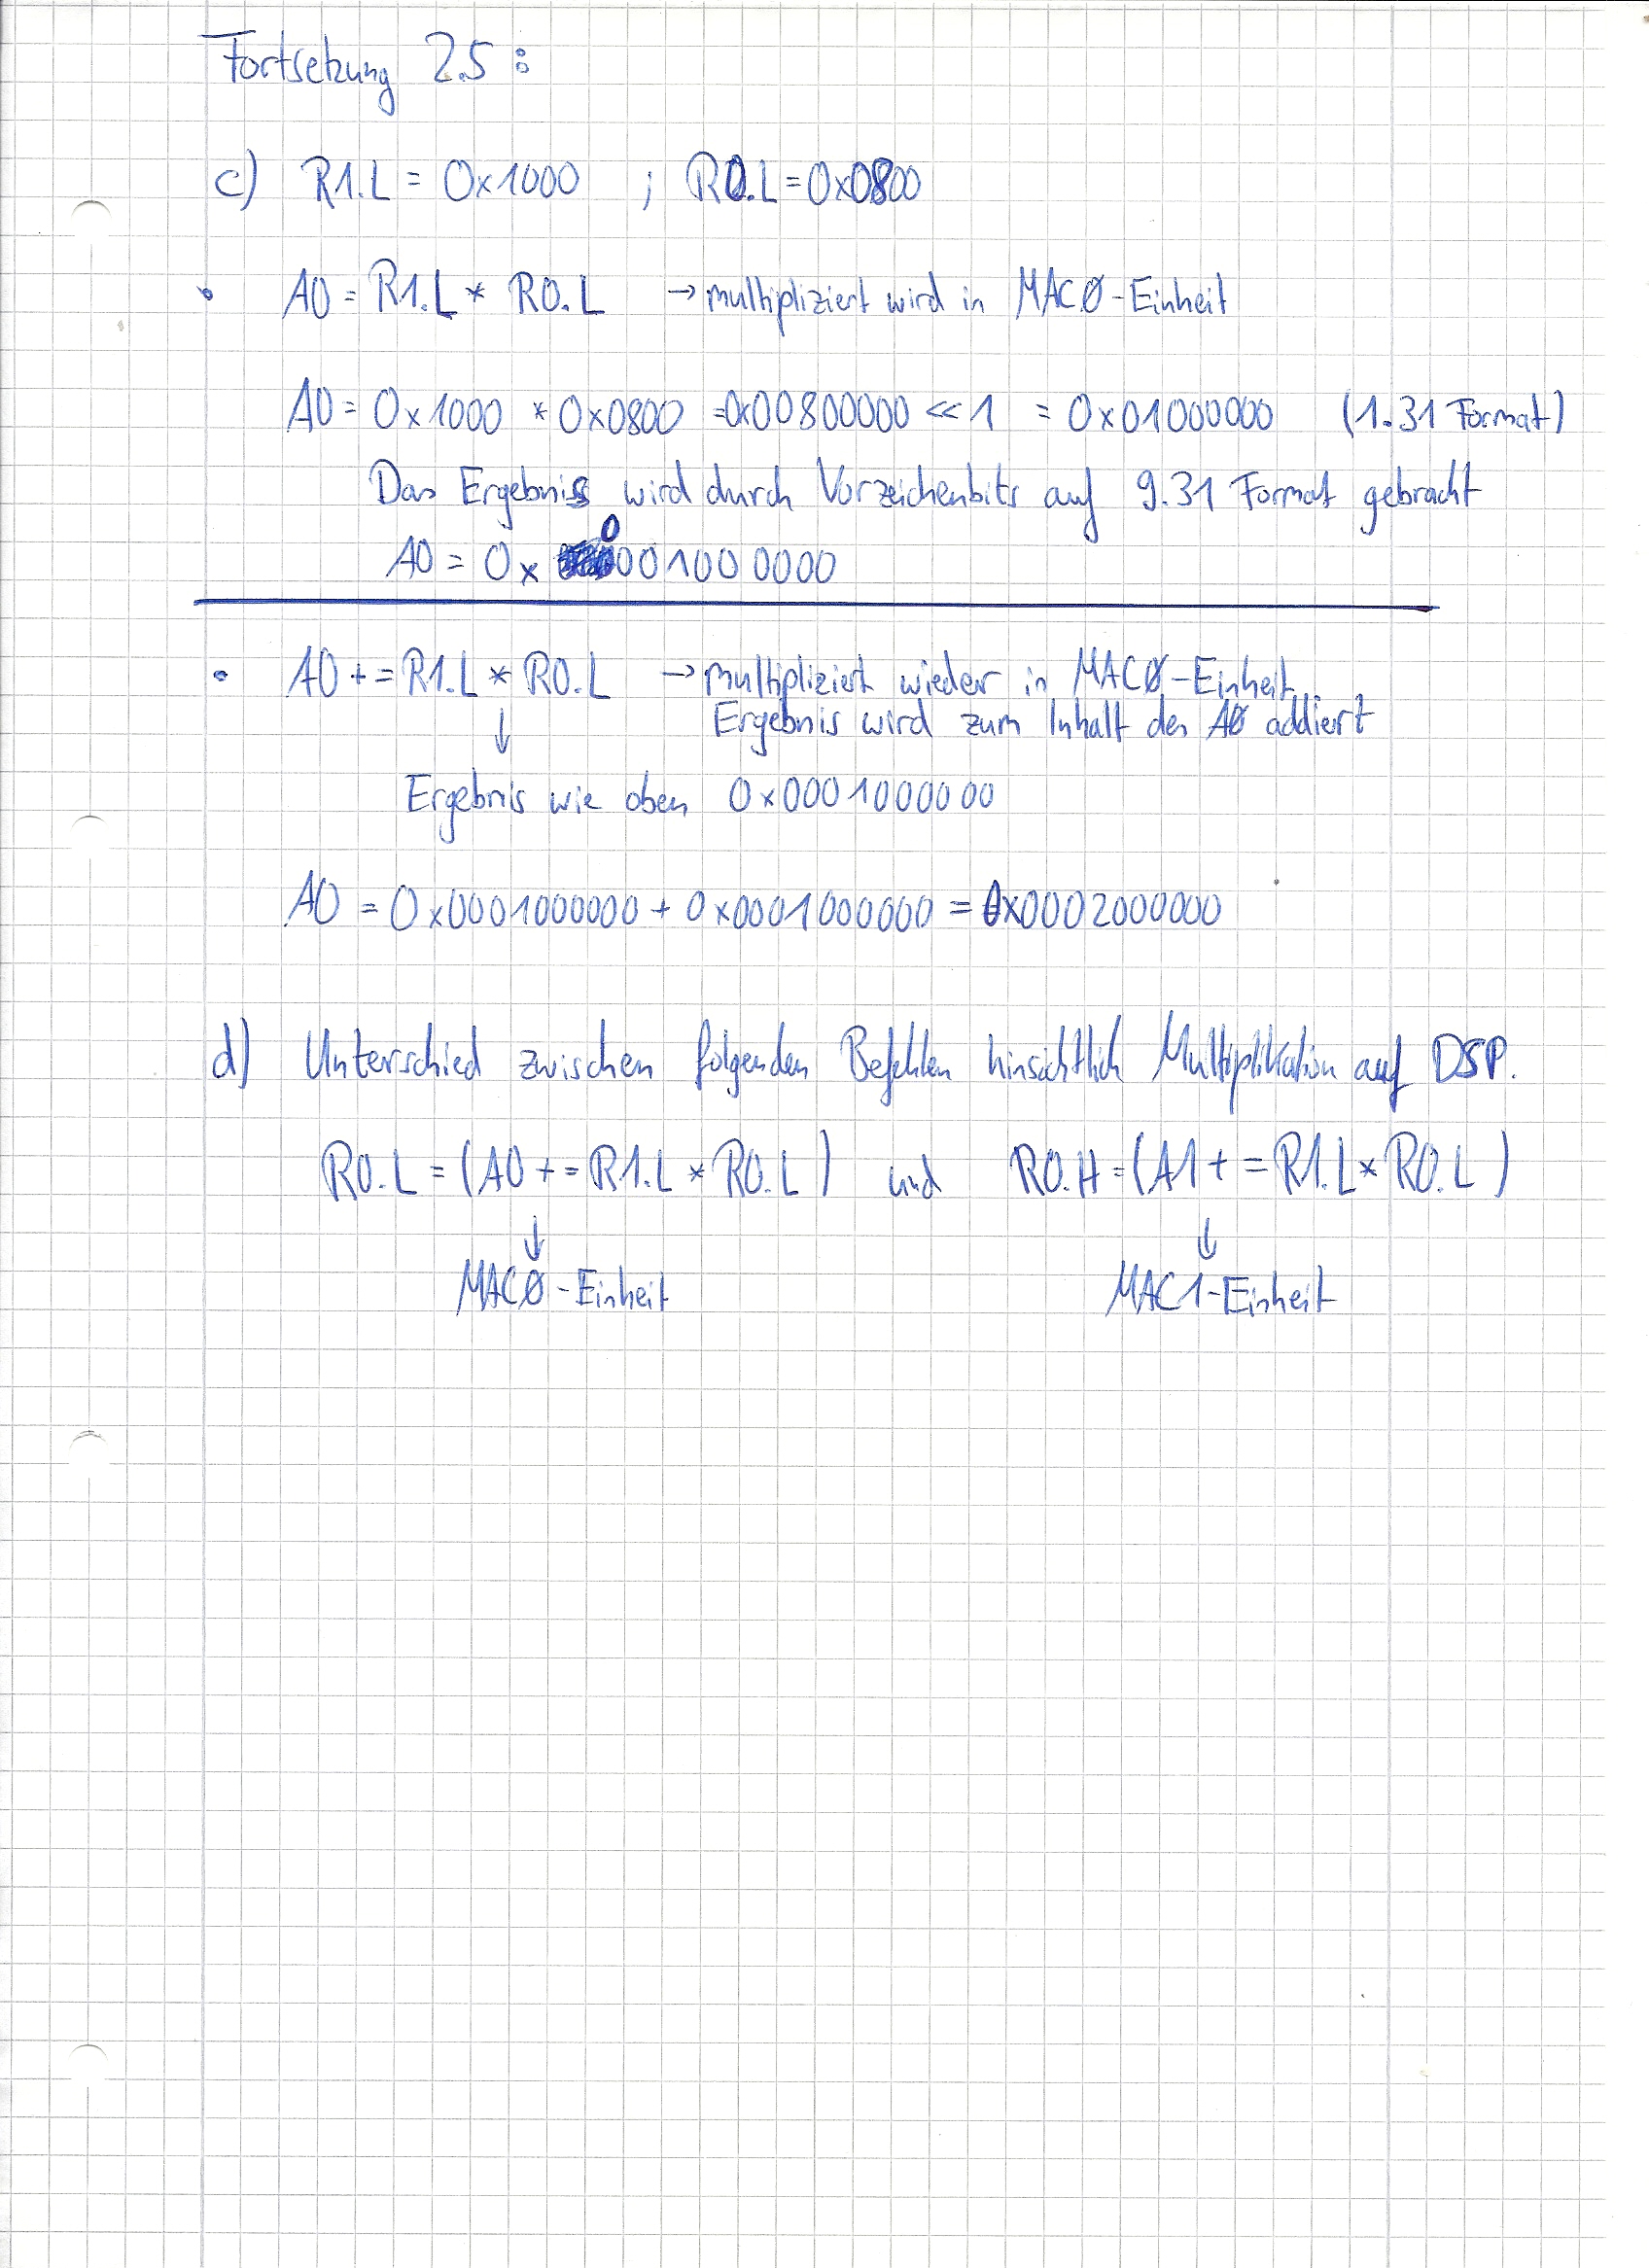 Fortsetzung 2.5 :
c) R1.L = 0x1000 ; R0.L = 0x0800
• A0 = R1.L * R0.L → multipliziert wird in MACØ-Einheit
A0 = 0x1000 * 0x0800 = 0x00800000 << 1 = 0x01000000 (1.31 Format)
Das Ergebniss wird durch Vorzeichenbits auf 9.31 Format gebracht
A0 = 0x0001000000
• A0 += R1.L * R0.L → multipliziert wieder in MACØ-Einheit
↓ Ergebnis wird zum Inhalt des AØ addiert
Ergebnis wie oben 0x0001000000
A0 = 0x0001000000 + 0x0001000000 = 0x0002000000
d) Unterschied zwischen folgenden Befehlen hinsichtlich Multiplikation auf DSP.
R0.L = (A0 += R1.L * R0.L) und R0.H = (A1 += R1.L * R0.L)
↓ ↓
MACØ-Einheit MAC1-Einheit